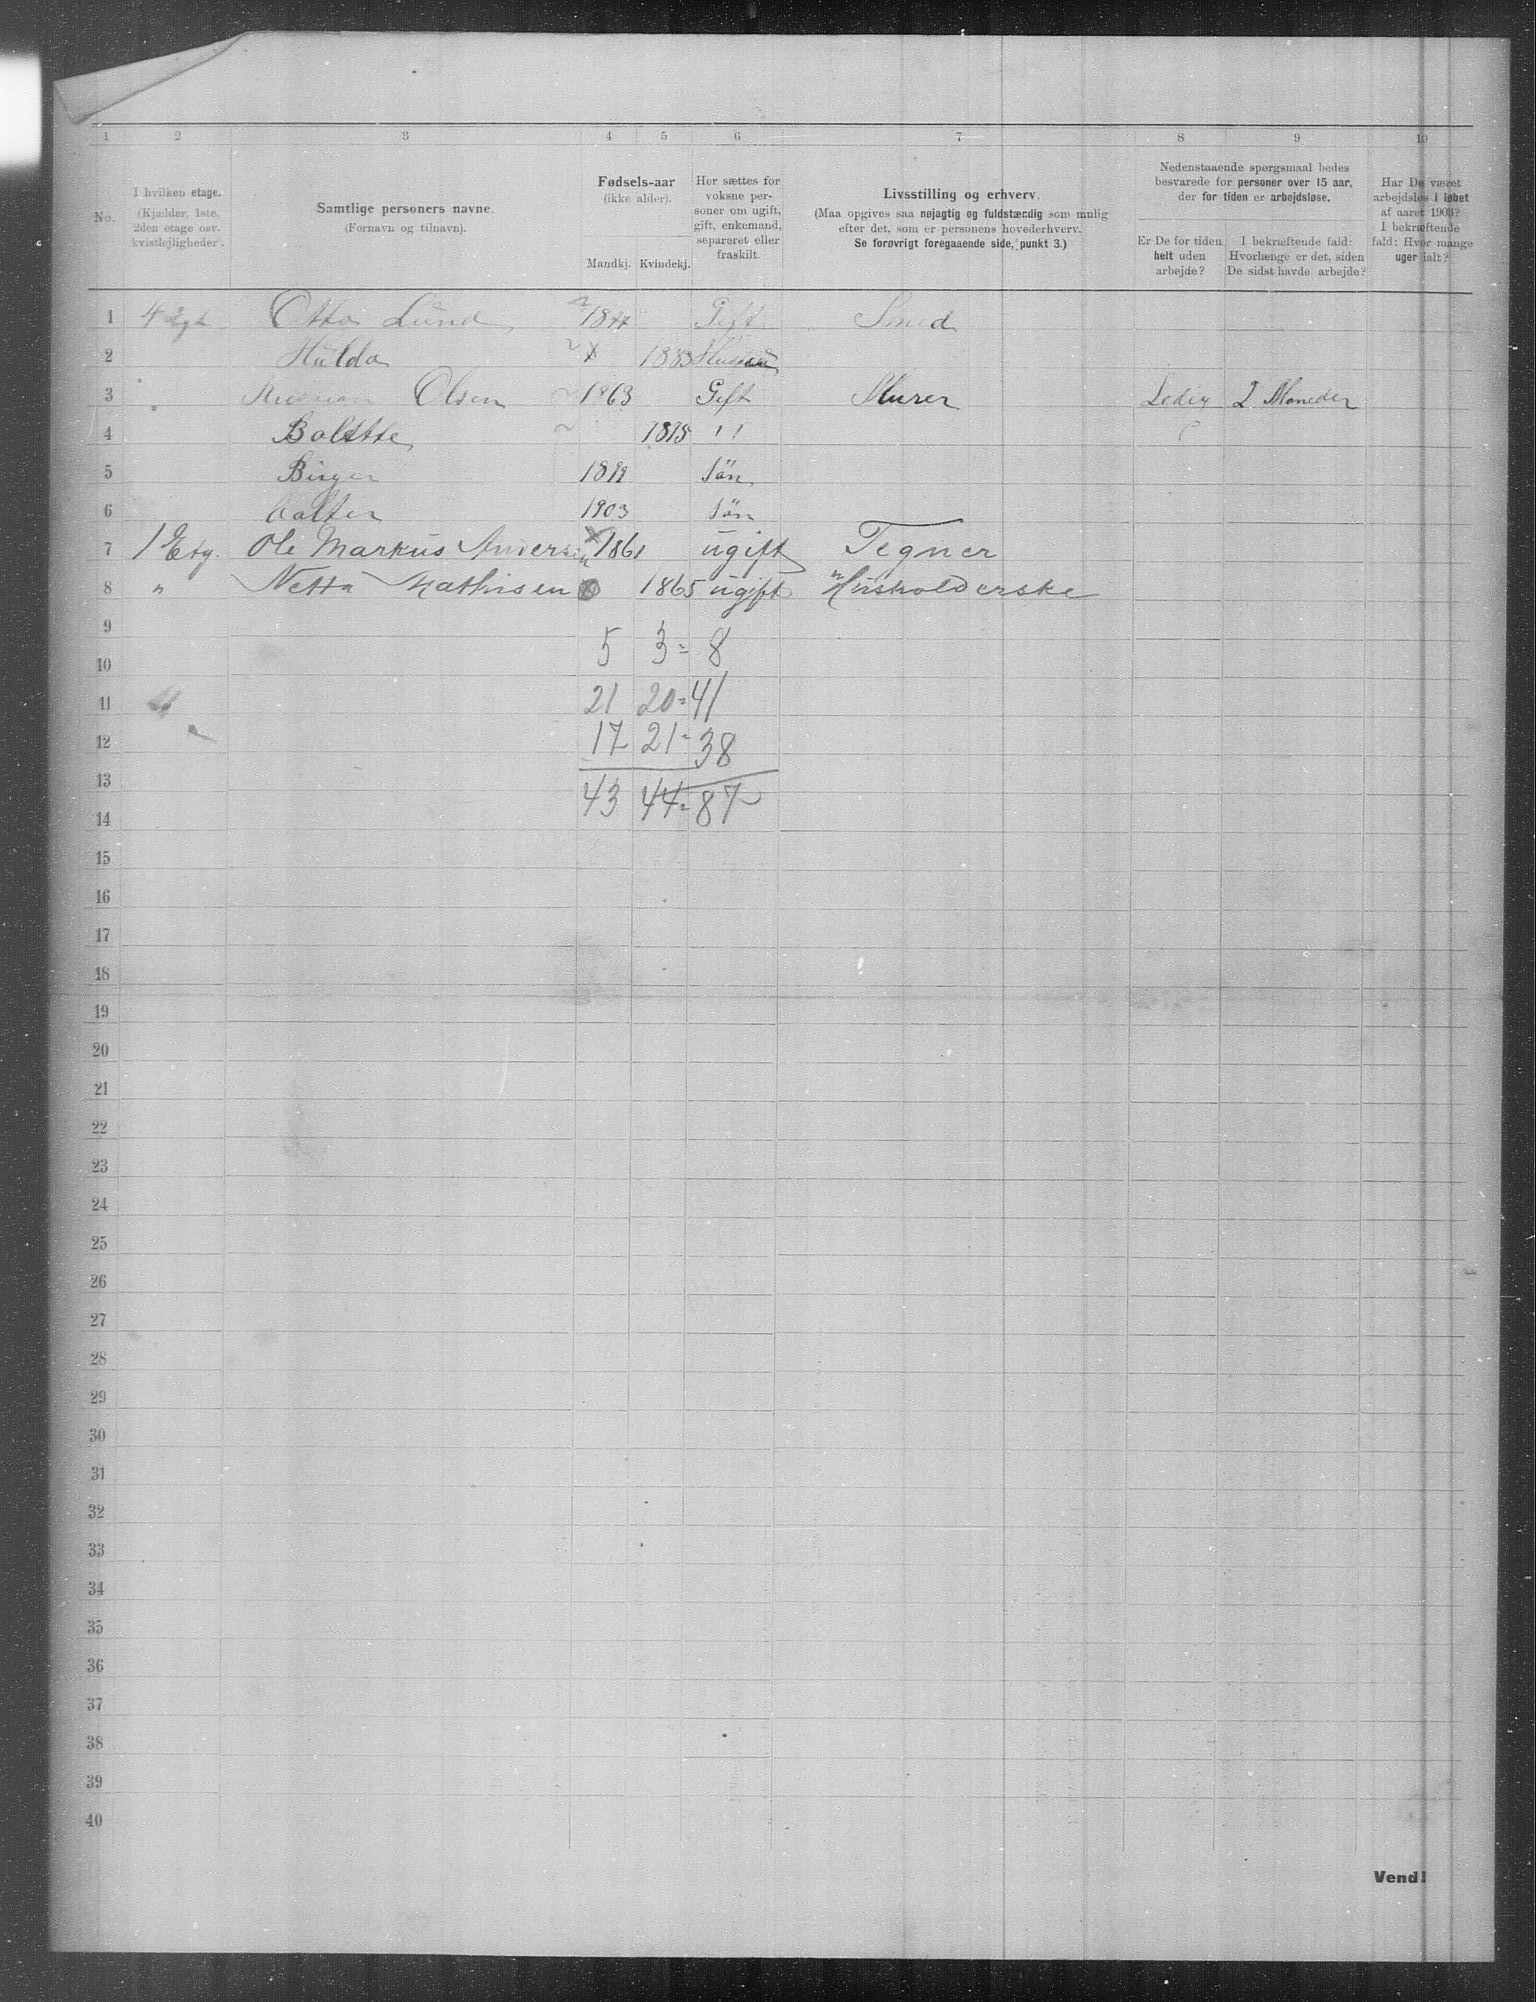 1 2 3 4 5 6 7 8 9 10
No.
I hvilken etage.
(Kjælder, 1ste,
2den etage osv.
kvistlejligheder).
Samtlige personers navne.
(Fornavn og tilnavn).
Fødsels-aar
(ikke alder).
Mandkj. Kvindekj.
Her sættes for
voksne per-
soner om ugift,
gift, enkemand,
separeret eller
fraskilt.
Livsstilling og erhverv.
(Maa opgives saa nøjagtig og fuldstændig som mulig
efter det, som er personens hovederhverv.
Se forøvrigt foregaaende side, punkt 3.)
Nedenstaaende spørgsmaal bedes
besvarede for personer over 15 aar,
der for tiden er arbejdsløse.
Er De for tiden
helt uden
arbejde?
I bekræftende fald:
Hvorlænge er det, siden
De sidst havde arbejde?
Har De været
arbejdsløs i løbet
af aaret 1903?
I bekræftende
fald: Hvor mange
uger ialt?
1 4 Otto Lund Gift Smed
2 Hulda 1883
3 Olsen 1863 Gift Murer Ledig 2 Moneder
4 Bolette 1875 ''
5 Birger 1899 Sön
6 1903 Sön
7 1 Etg. Ole Markus Andersen 1861 ugift Tegner
8 " Netta Mathisen 1865 ugift Husholderske
9 5 3 = 8
10
11 21 20 = 41
12 17 21 = 38
13 43 44 = 87
14
15
16
17
18
19
20
21
22
23
24
25
26
27
28
29
30
31
32
33
34
35
36
37
38
39
40
Vend!